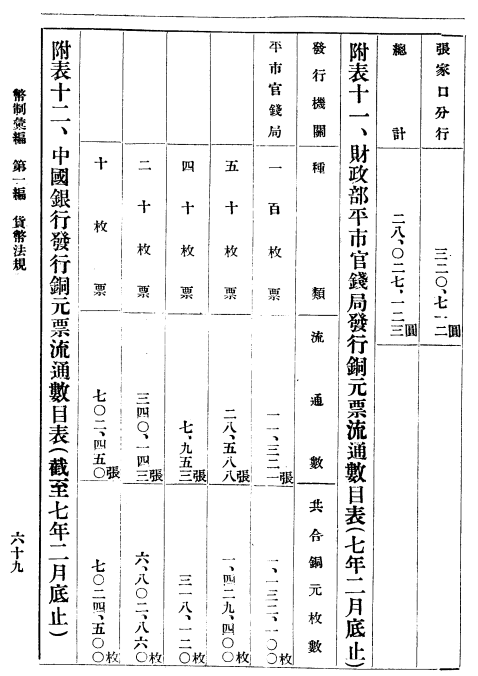 張家口分行 三二〇、七一二圓
總計 二八、〇二七、一二三圓
附表十一、財政部平市官錢局發行銅元票流通數目表(七年二月底止)
發行機關 種類 流通數 共合銅元枚數
平市官錢局 一百枚票 一一、三二一張 一、一三二、一〇〇枚
五十枚票 二八、五八八張 一、四二九、四〇〇枚
四十枚票 七、九五三張 三一八、一二〇枚
二十枚票 三四〇、一四三張 六、八〇二、八六〇枚
十枚票 七〇二、四五〇張 七〇二四、五〇〇枚
附表十二、中國銀行發行銅元票流通數目表(截至七年二月底止)
幣制彙編 第一編 貨幣法規 六十九